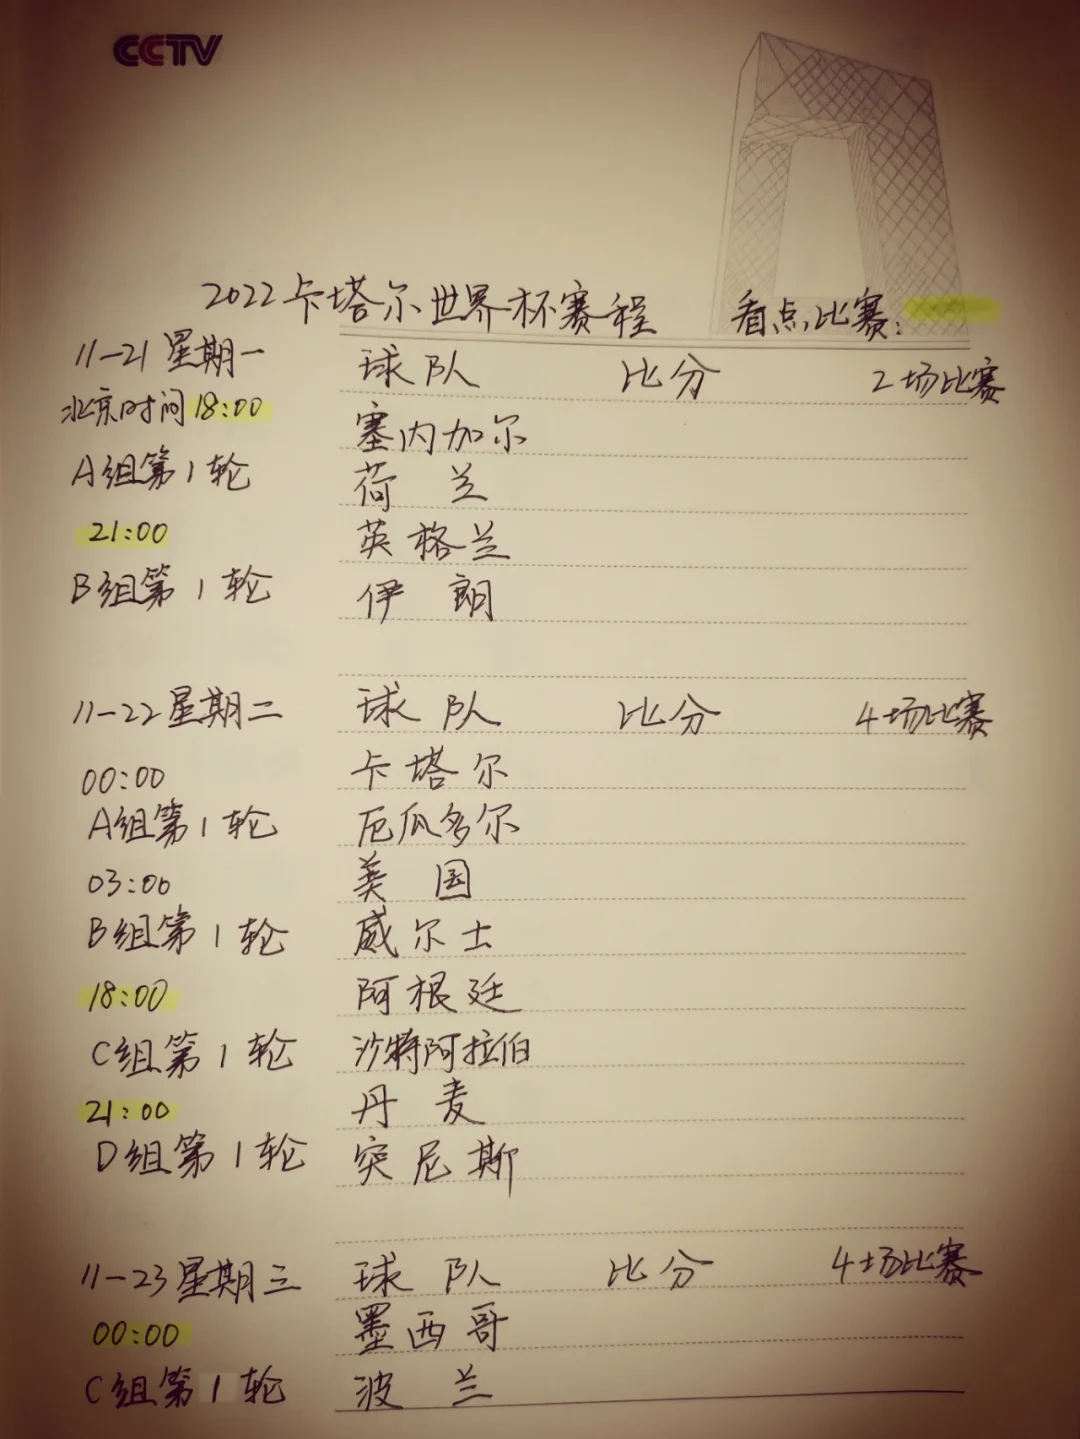 CCTV
2022卡塔尔世界杯赛程 看点比赛:
11-21 星期一 球队 比分 2场比赛
北京时间18:00 塞内加尔
A组第1轮 荷兰
21:00 英格兰
B组第1轮 伊朗
11-22 星期二 球队 比分 4场比赛
00:00 卡塔尔
A组第1轮 厄瓜多尔
03:00 美国
B组第1轮 威尔士
18:00 阿根廷
C组第1轮 沙特阿拉伯
21:00 丹麦
D组第1轮 突尼斯
11-23 星期三 球队 比分 4场比赛
00:00 墨西哥
C组第1轮 波兰